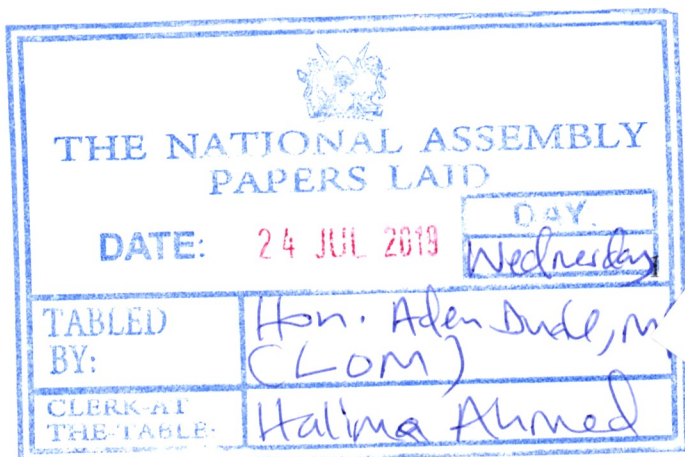 THE NATIONAL ASSEMBLY
PAPERS LAID
DATE: 24 JUL 2019
DAY.
Wednesday
TABLED BY:
Hon. Aden Duale, M
(LOM)
CLERK-AT THE-TABLE:
Halima Ahmed